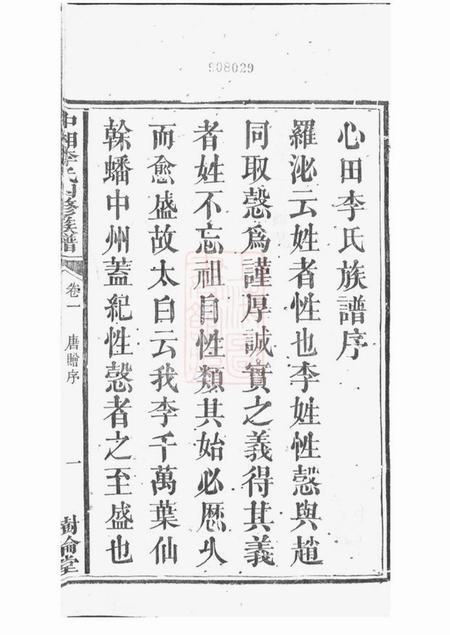 908029
心田李氏族譜序
羅泌云姓者性也李姓性愨與趙
同取愨爲謹厚誠實之義得其義
者姓不忘祖自性類其始必厯乆
而愈盛故太白云我李千萬葉仙
榦蟠中州蓋紀性愨者之至盛也
中湘李氏四修族譜
卷一
唐贈序
一